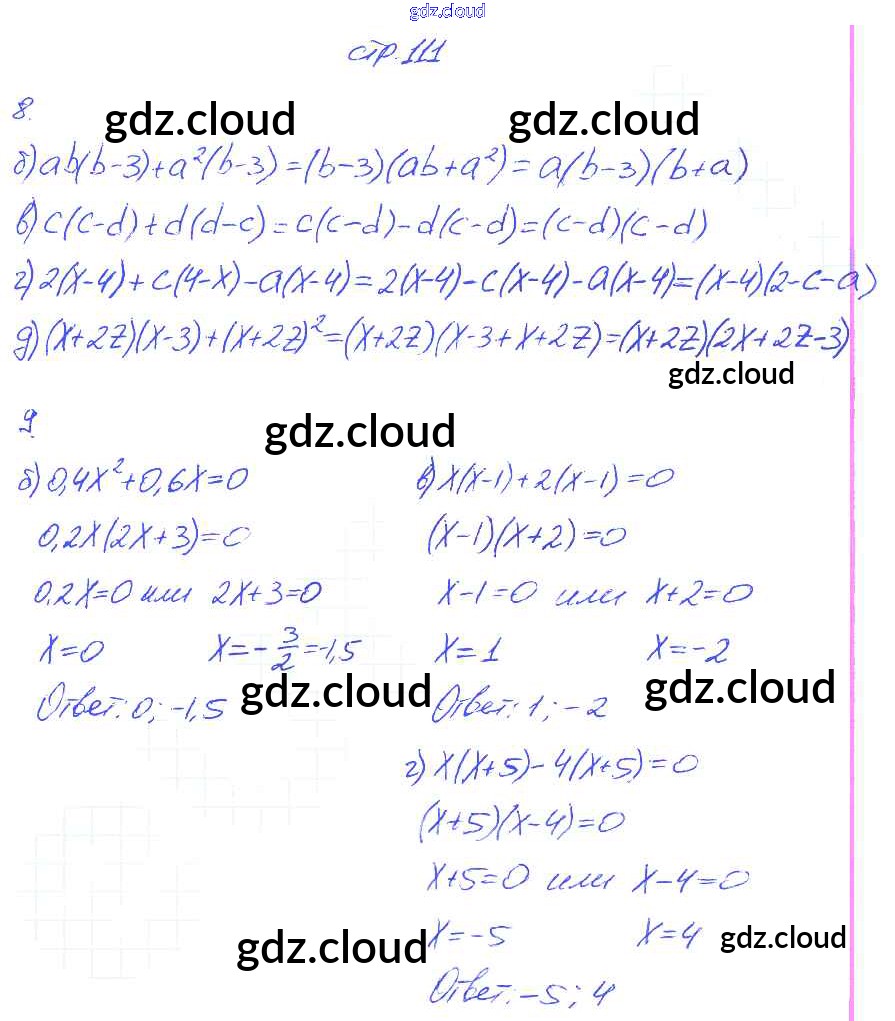 gdz.cloud
стр. 111
8.
gdz.cloud gdz.cloud
б) ab(b-3)+a²(b-3)=(b-3)(ab+a²)=a(b-3)(b+a)
в) c(c-d)+d(d-c)=c(c-d)-d(c-d)=(c-d)(c-d)
г) 2(x-4)+c(4-x)-a(x-4)=2(x-4)-c(x-4)-a(x-4)=(x-4)(2-c-a)
д) (x+2z)(x-3)+(x+2z)²=(x+2z)(x-3+x+2z)=(x+2z)(2x+2z-3)
gdz.cloud
9.
gdz.cloud
б) 0,4x²+0,6x=0
0,2x(2x+3)=0
0,2x=0 или 2x+3=0
x=0 x=-3/2=-1,5
Ответ: 0; -1,5
gdz.cloud
в) x(x-1)+2(x-1)=0
(x-1)(x+2)=0
x-1=0 или x+2=0
x=1 x=-2
Ответ: 1; -2
gdz.cloud
г) x(x+5)-4(x+5)=0
(x+5)(x-4)=0
x+5=0 или x-4=0
x=-5 x=4
gdz.cloud gdz.cloud
Ответ: -5; 4